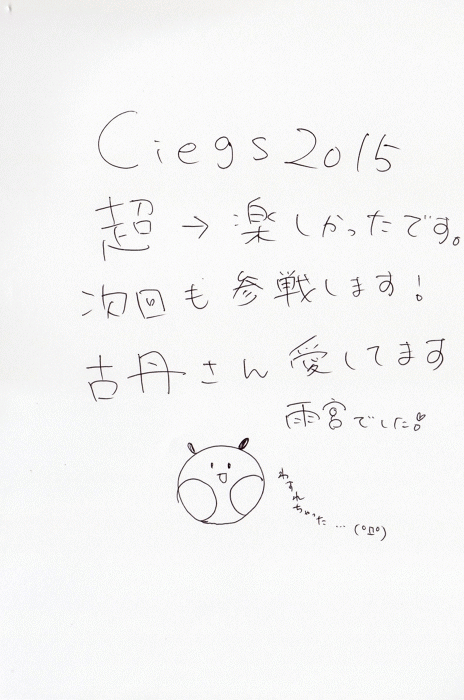 Ciegs2015
超→楽しかったです。
次回も参戦します!
古丹さん愛してます
雨宮でした!
わすれちゃった…(°Д°)